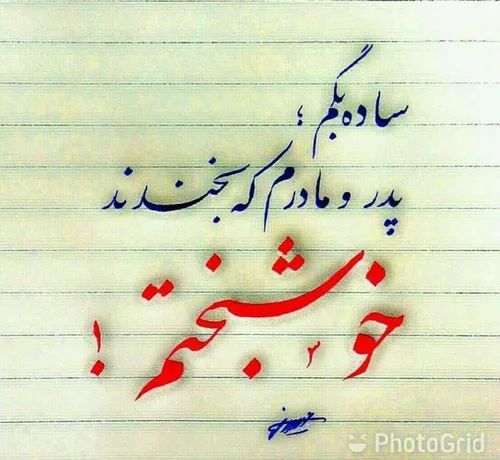 ساده بگم ؛
پدر و مادرم که بخندند
خوشبختم !
PhotoGrid